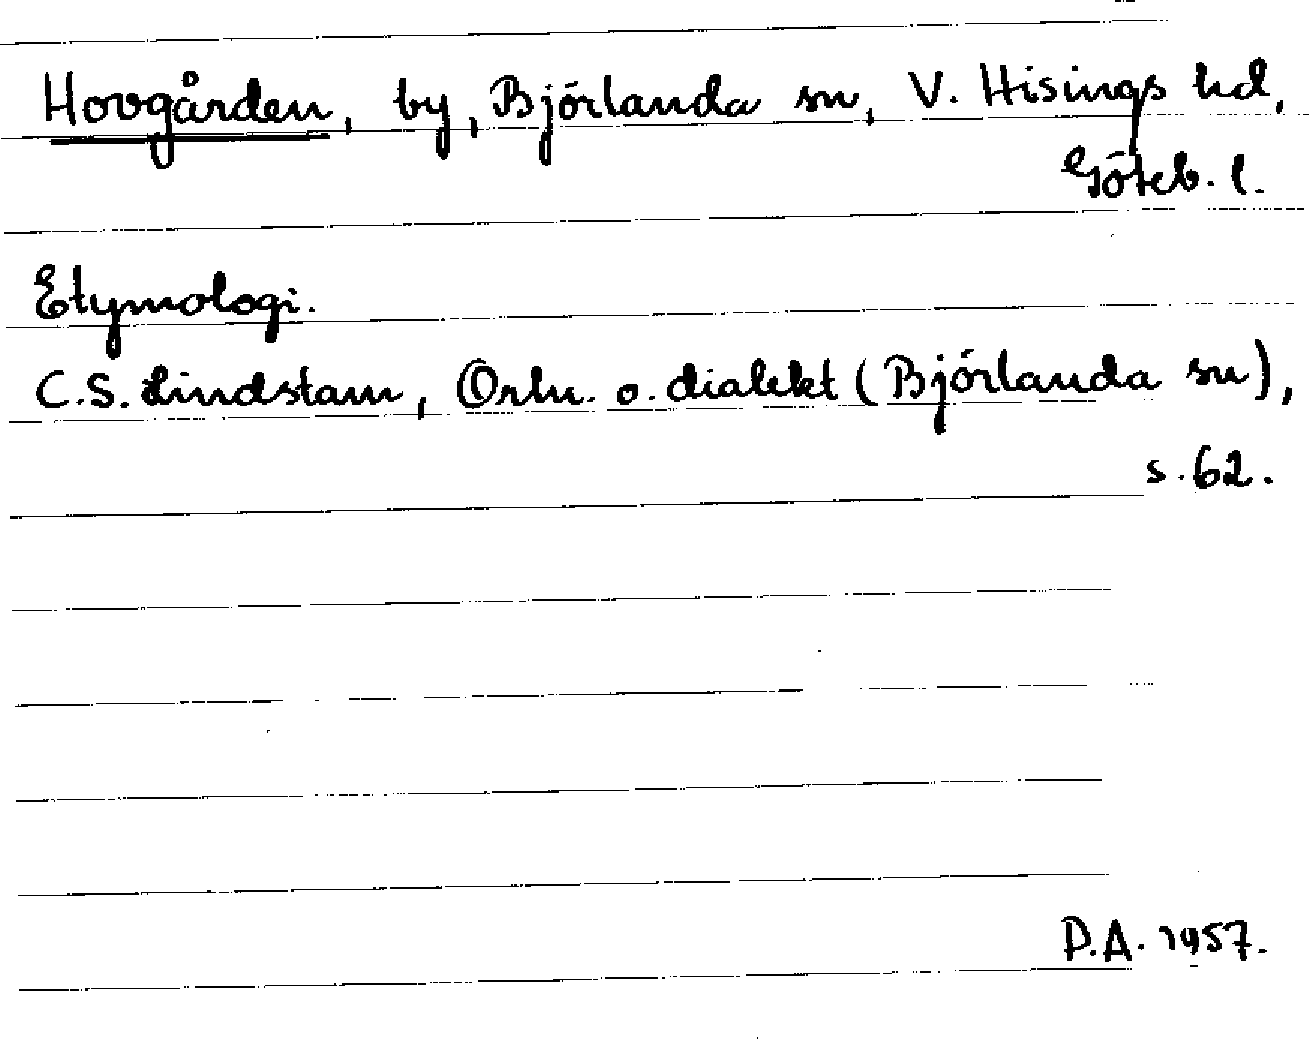 Hovgården, by, Björlanda sn, V. Hisings hd,
Göteb. l.
Etymologi.
C.S. Lindstam, Ortn. o. dialekt (Björlanda sn),
s. 62.
P.A. 1957.